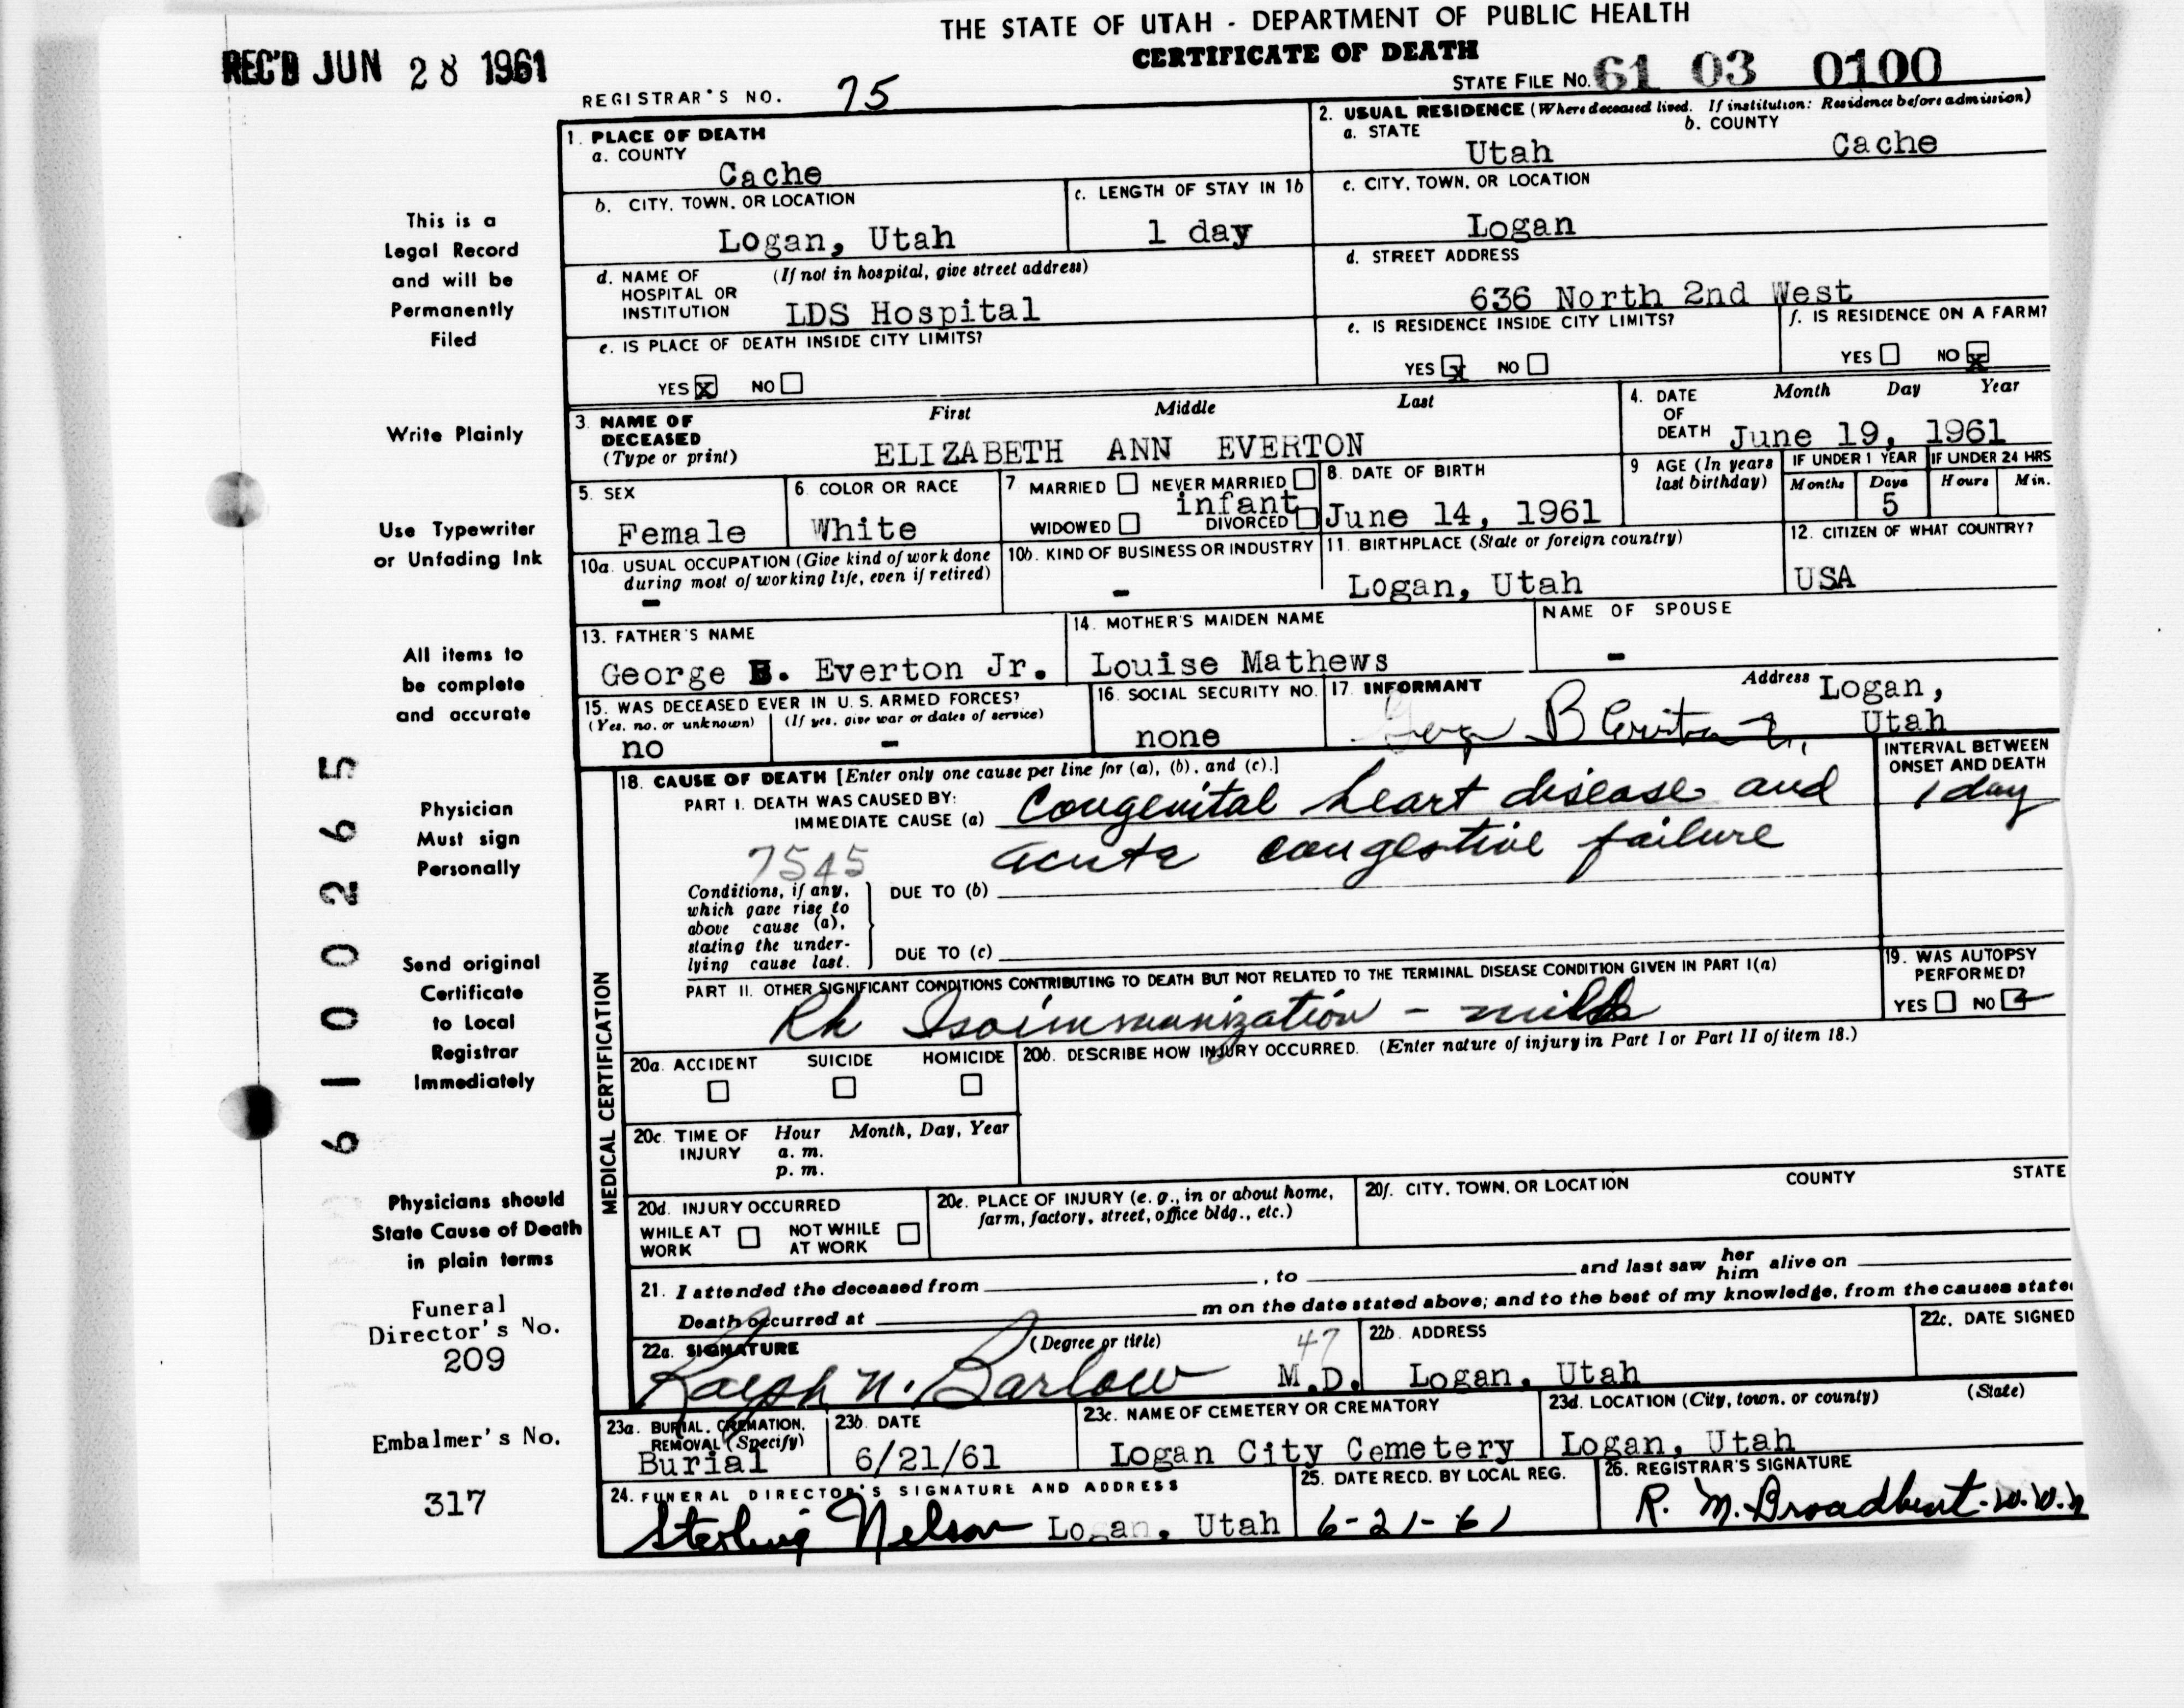 THE STATE OF UTAH - DEPARTMENT OF PUBLIC HEALTH
CERTIFICATE OF DEATH
REC'D JUN 28 1961
STATE FILE NO. 61 03 0100
REGISTRAR'S NO. 75
1. PLACE OF DEATH
a. COUNTY
Cache
2. USUAL RESIDENCE (Where deceased lived. If institution: Residence before admission)
a. STATE
Utah
b. COUNTY
Cache
b. CITY, TOWN, OR LOCATION
Logan, Utah
c. LENGTH OF STAY IN 1b
1 day
c. CITY, TOWN, OR LOCATION
Logan
d. NAME OF HOSPITAL OR INSTITUTION
(If not in hospital, give street address)
LDS Hospital
d. STREET ADDRESS
636 North 2nd West
e. IS PLACE OF DEATH INSIDE CITY LIMITS?
YES x NO
e. IS RESIDENCE INSIDE CITY LIMITS?
YES x NO
f. IS RESIDENCE ON A FARM?
YES NO x
3. NAME OF DECEASED
(Type or print)
First Middle Last
ELIZABETH ANN EVERTON
4. DATE OF DEATH
Month Day Year
June 19, 1961
5. SEX
Female
6. COLOR OR RACE
White
7. MARRIED NEVER MARRIED
infant
WIDOWED DIVORCED
8. DATE OF BIRTH
June 14, 1961
9 AGE (In years last birthday)
IF UNDER 1 YEAR
Months Days
5
IF UNDER 24 HRS
Hours Min.
10a. USUAL OCCUPATION (Give kind of work done during most of working life, even if retired)
-
10b. KIND OF BUSINESS OR INDUSTRY
-
11. BIRTHPLACE (State or foreign country)
Logan, Utah
12. CITIZEN OF WHAT COUNTRY?
USA
13. FATHER'S NAME
George B. Everton Jr.
14. MOTHER'S MAIDEN NAME
Louise Mathews
NAME OF SPOUSE
-
15. WAS DECEASED EVER IN U. S. ARMED FORCES?
(Yes, no, or unknown) (If yes, give war or dates of service)
no -
16. SOCIAL SECURITY NO.
none
17. INFORMANT
B Everton Jr.
Address Logan,
Utah
18. CAUSE OF DEATH [Enter only one cause per line for (a), (b), and (c).]
PART I. DEATH WAS CAUSED BY:
IMMEDIATE CAUSE (a) Congenital heart disease and
acute congestive failure
7545
INTERVAL BETWEEN ONSET AND DEATH
1 day
Conditions, if any, which gave rise to above cause (a), stating the underlying cause last.
DUE TO (b)
DUE TO (c)
PART II. OTHER SIGNIFICANT CONDITIONS CONTRIBUTING TO DEATH BUT NOT RELATED TO THE TERMINAL DISEASE CONDITION GIVEN IN PART I(a)
Rh Isoimmunization - mild
19. WAS AUTOPSY PERFORMED?
YES NO
MEDICAL CERTIFICATION
20a. ACCIDENT SUICIDE HOMICIDE
20b. DESCRIBE HOW INJURY OCCURRED. (Enter nature of injury in Part I or Part II of item 18.)
20c. TIME OF INJURY
Hour Month, Day, Year
a. m.
p. m.
20d. INJURY OCCURRED
WHILE AT WORK NOT WHILE AT WORK
20e. PLACE OF INJURY (e. g., in or about home, farm, factory, street, office bldg., etc.)
20f. CITY, TOWN, OR LOCATION COUNTY STATE
21. I attended the deceased from , to and last saw her him alive on
Death occurred at m on the date stated above; and to the best of my knowledge, from the causes state
22a. SIGNATURE
(Degree or title)
Ralph N. Barlow M.D.
47
22b. ADDRESS
Logan, Utah
22c. DATE SIGNED
23a. BURIAL, CREMATION, REMOVAL (Specify)
Burial
23b. DATE
6/21/61
23c. NAME OF CEMETERY OR CREMATORY
Logan City Cemetery
23d. LOCATION (City, town, or county) (State)
Logan, Utah
24. FUNERAL DIRECTOR'S SIGNATURE AND ADDRESS
Sterling Nelson Logan, Utah
25. DATE RECD. BY LOCAL REG.
6-21-61
26. REGISTRAR'S SIGNATURE
R. M. Broadbent
This is a
Legal Record
and will be
Permanently
Filed
Write Plainly
Use Typewriter
or Unfading Ink
All items to
be complete
and accurate
Physician
Must sign
Personally
Send original
Certificate
to Local
Registrar
Immediately
Physicians should
State Cause of Death
in plain terms
Funeral
Director's No.
209
Embalmer's No.
317
6100265